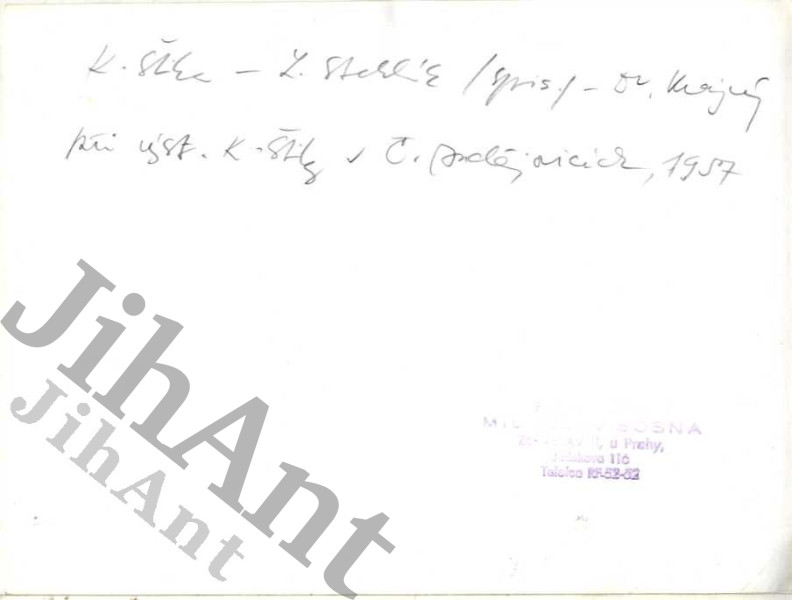 K. Štika – L. Stehlík /spis./ – Dr. Krajný
při výst. K. Štiky v Č. Budějovicích, 1957
JihAnt
JihAnt
BOSNA
u Prahy,
116
Telefon 82-52